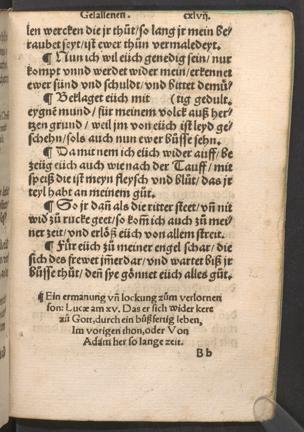 Gefallenen. cxlvij.
len wercken die jr thůt/so lang jr mein be⸗
raubet seyt/ist ewer thůn vermaledeyt.
¶ Nun ich wil eüch genedig sein/nur
kompt vnnd werdet wider mein/erkennet
ewer sünd vnd schuldt/vnd bittet demü⸗
¶ Beklaget eüch mit (tig gedult.
eygnē mund/für meinem volck auß her⸗
tzen grund/weil jm von eüch ist leyd ge⸗
schehn/sols auch nun ewer bůsse sehn.
¶ Da mit nem ich eüch wider auff/be
zeüg eüch auch wie nach der Tauff/mit
speiß die ist meyn fleysch vnd blůt/das jr
teyl habt an meinem gůt.
¶ So jr dañ als die ritter steet/vñ nit
wid zů rucke geet/so kom̃ ich auch zů mei⸗
ner zeit/vnd erlöß eüch von allem streit.
¶ Für eüch zů meiner engel schar/die
sich des frewet jm̃erdar/vnd wartet biß jr
bůsse thůt/den sye gönnet eüch alles gůt.
¶ Ein ermanung vñ lockung zům verlornen
son: Lucæ am xv. Das er sich wider kere
zů Gott, durch ein bůßfertig leben,
Im vorigen thon, oder Von
Adam her so lange zeit.
B b